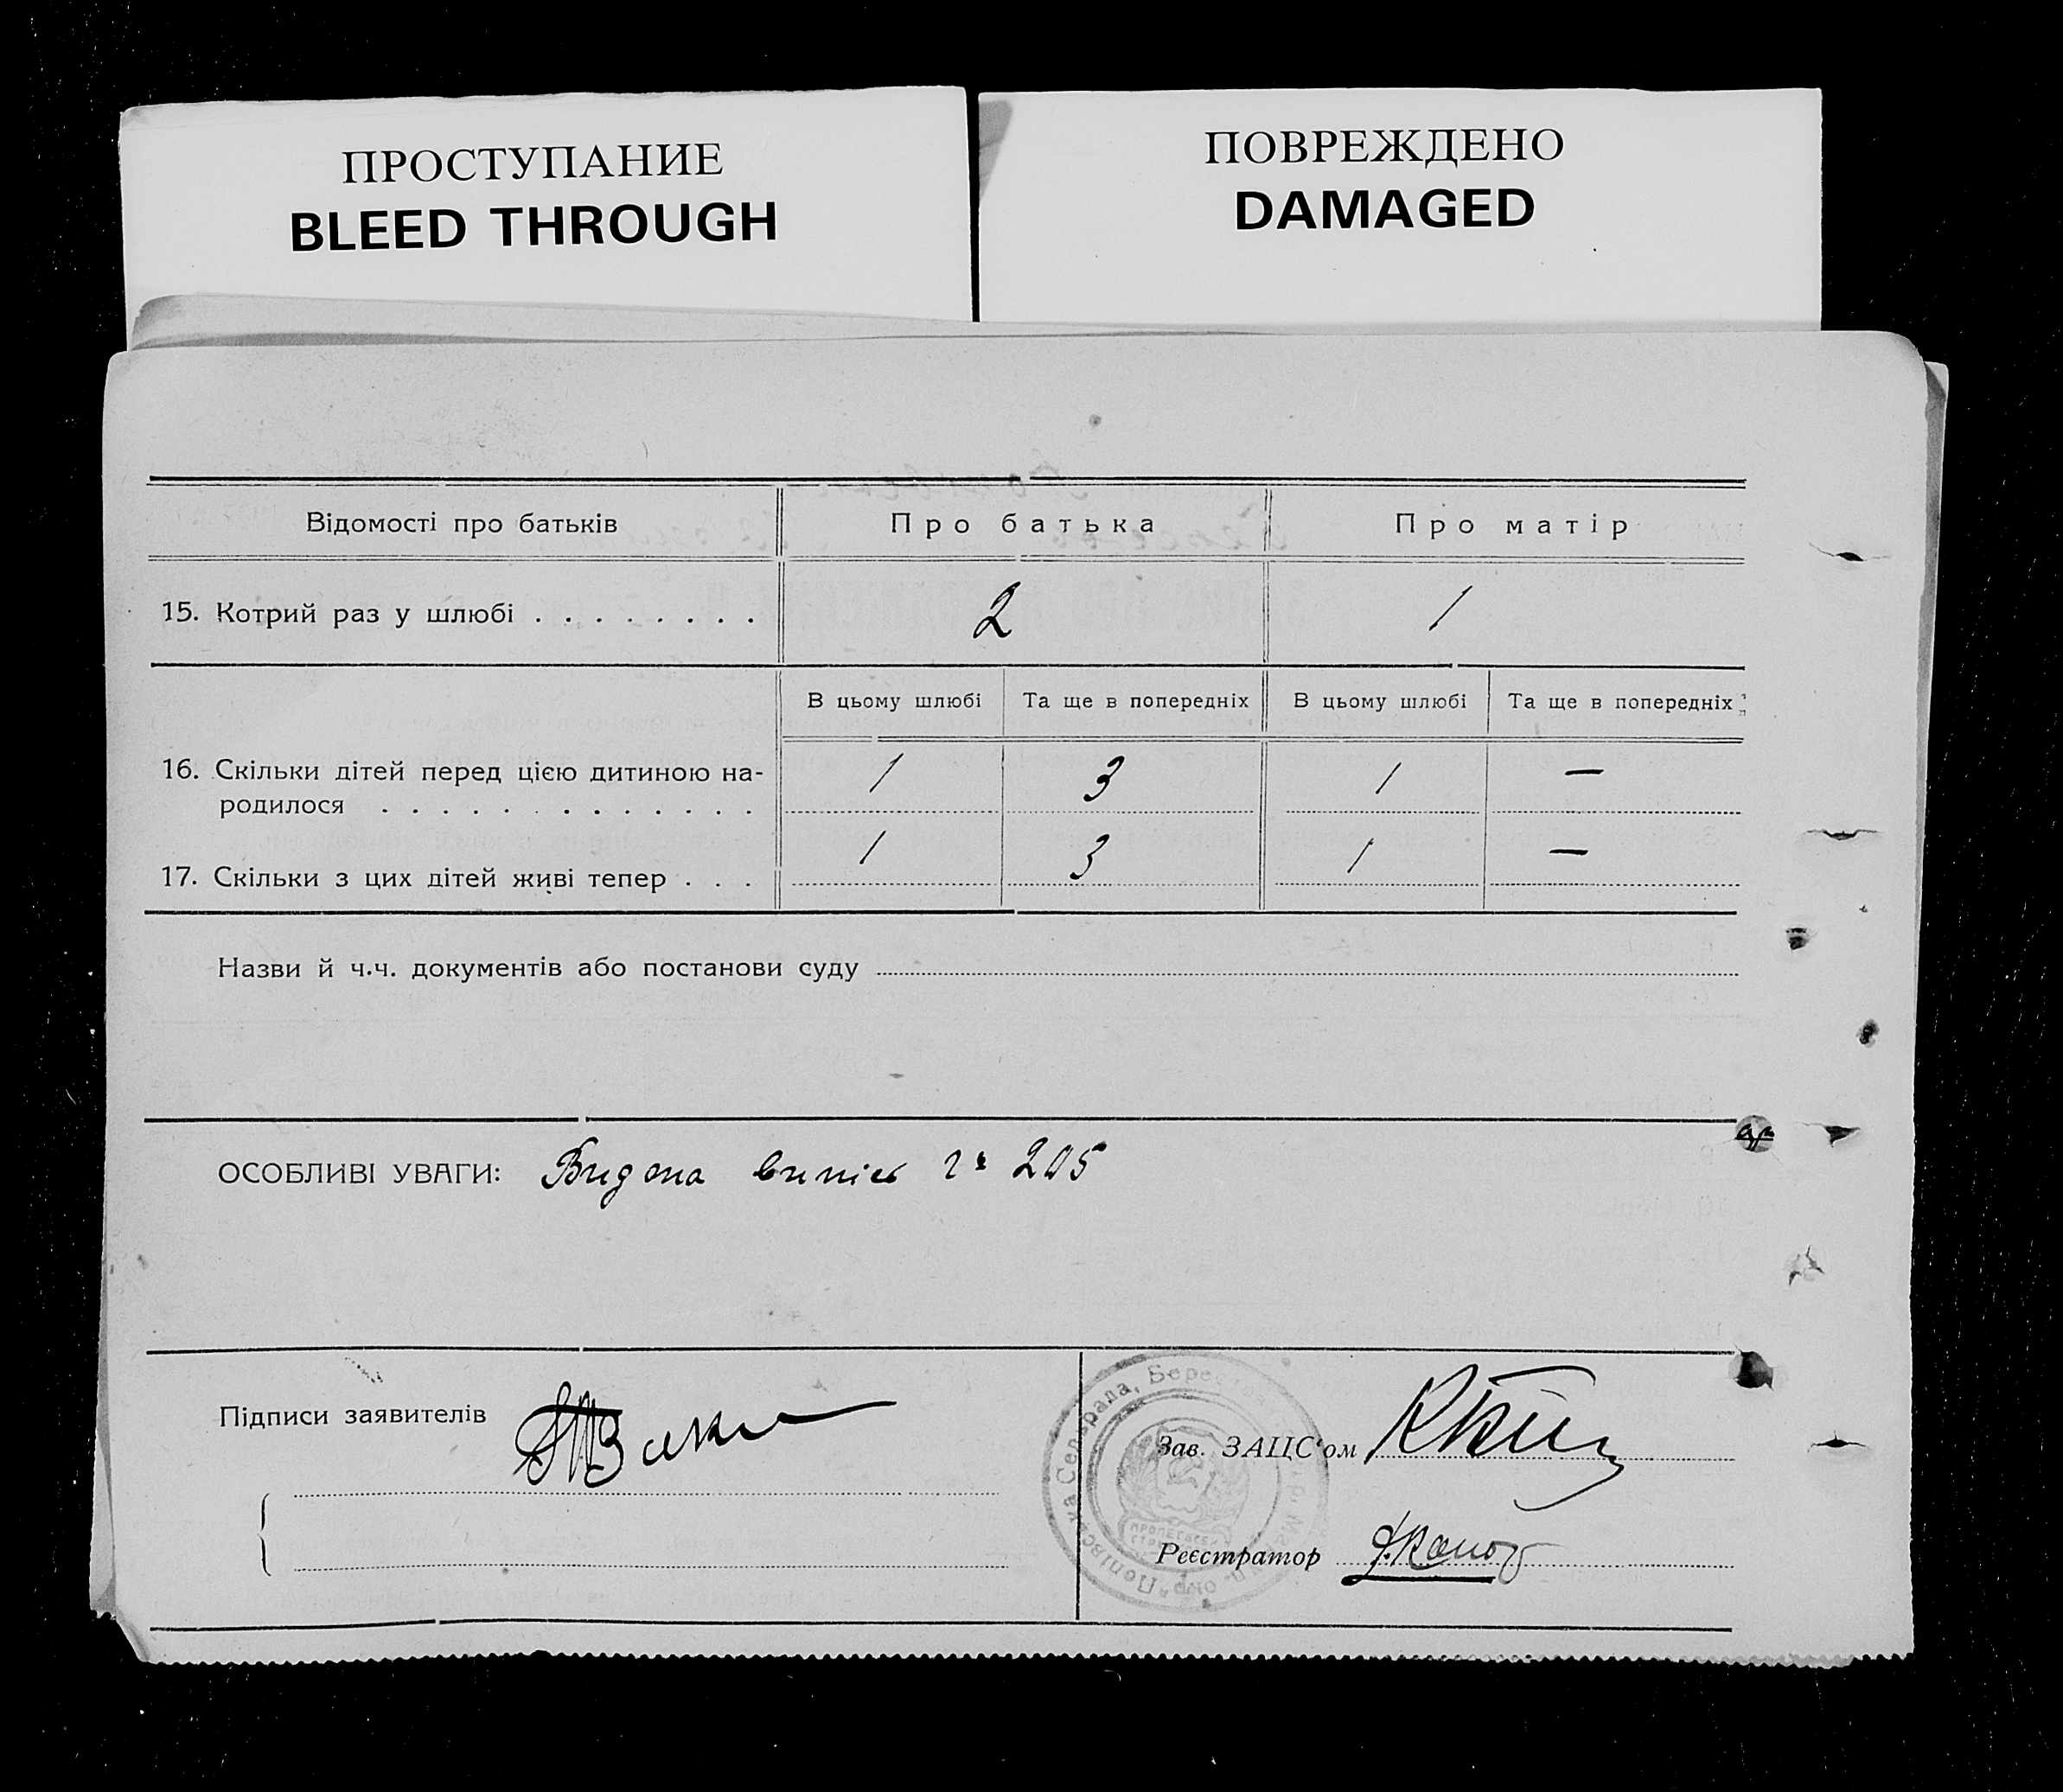 ПРОСТУПАНИЕ
BLEED THROUGH
ПОВРЕЖДЕНО
DAMAGED
Відомості про батьків Про батька Про матір
15. Котрий раз у шлюбі . . . . . . . . 2 1
В цьому шлюбі Та ще в попередніх В цьому шлюбі Та ще в попередніх
16. Скільки дітей перед цією дитиною на- 1 3 1 —
родилося . . . . . . . . . . . . .
17. Скільки з цих дітей живі тепер . . . 1 3 1 —
Назви й ч.ч. документів або постанови суду
ОСОБЛИВІ УВАГИ: Видана випись 205
Підписи заявителів
Зав. ЗАЦС'ом
Реєстратор
Попівська Сельрада,